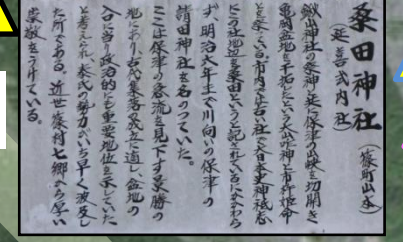 桑田神社（篠町山本）
（延喜式内社）
鍬山神社の祭神と共に保津の峡を切開き
亀岡盆地を干拓したという大山咋神と市杵姫命
を祭っている。市内では古い社で大日本史神祇志
にこの社地辺を桑田という と記されているにかかわら
ず、明治九年まで川向いの保津の
請田神社を名のっていた。
ここは保津の急流を見下す景勝の
地にあり古代集落の成立に適し、盆地の
入口に当り政治的にも重要地位を示していた
と考えられ秦氏の勢力がいち早く波及し
た所である。近世篠村七郷から厚い
崇敬をうけている。